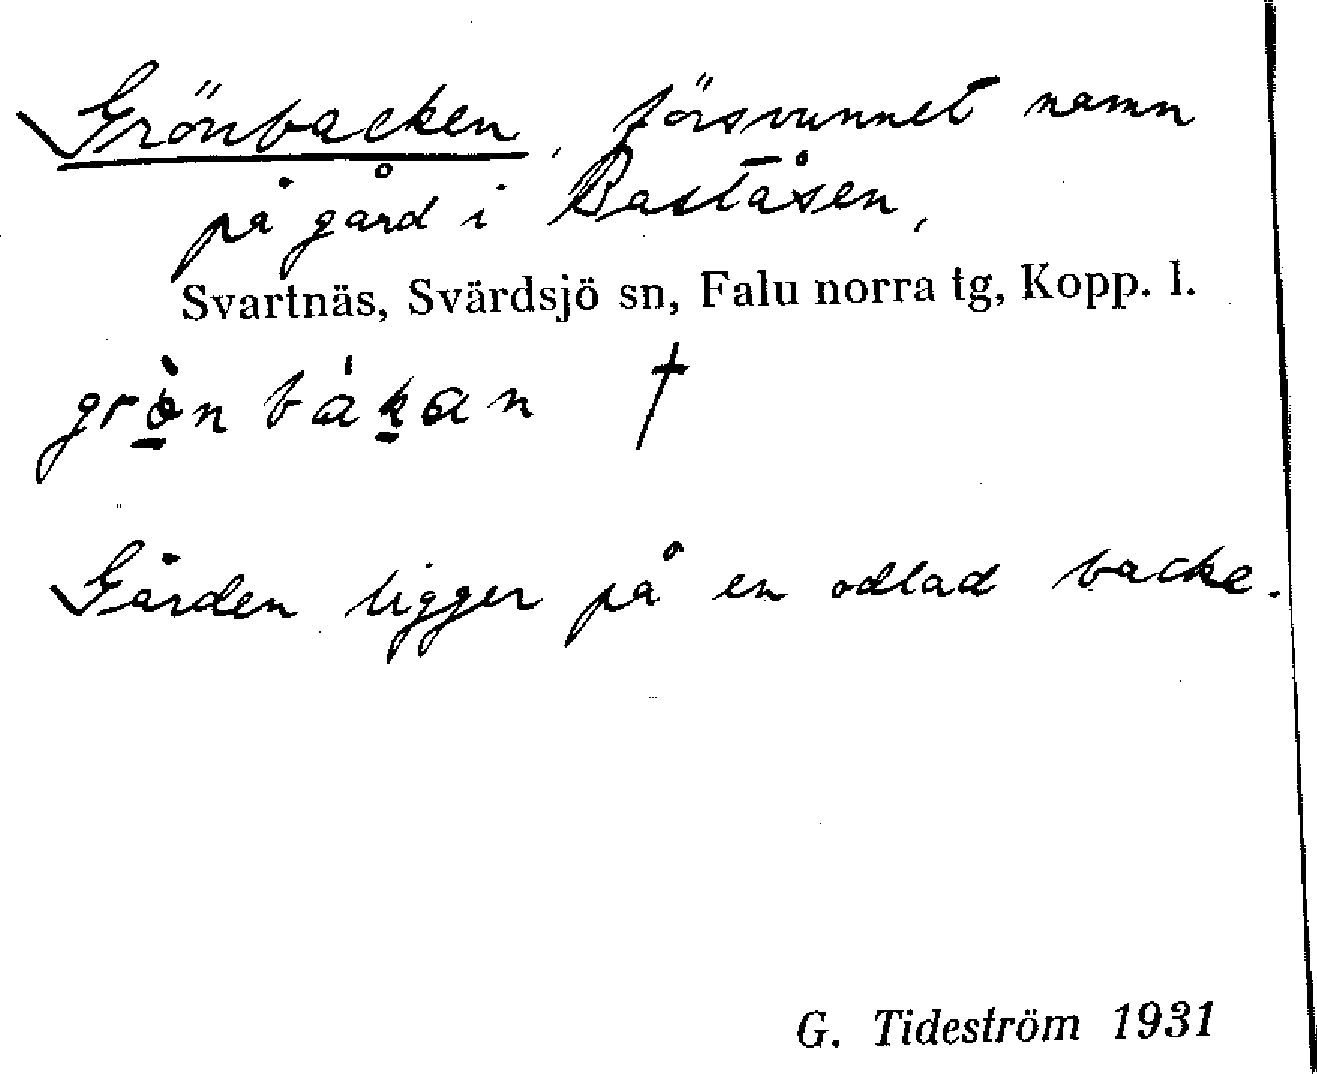 Grönbacken, försvunnet namn
på gård i Baståsen,
Svartnäs, Svärdsjö sn, Falu norra tg, Kopp. l.
grò̠n bák̠an †
Gården ligger på en odlad backe.
G. Tideström 1931